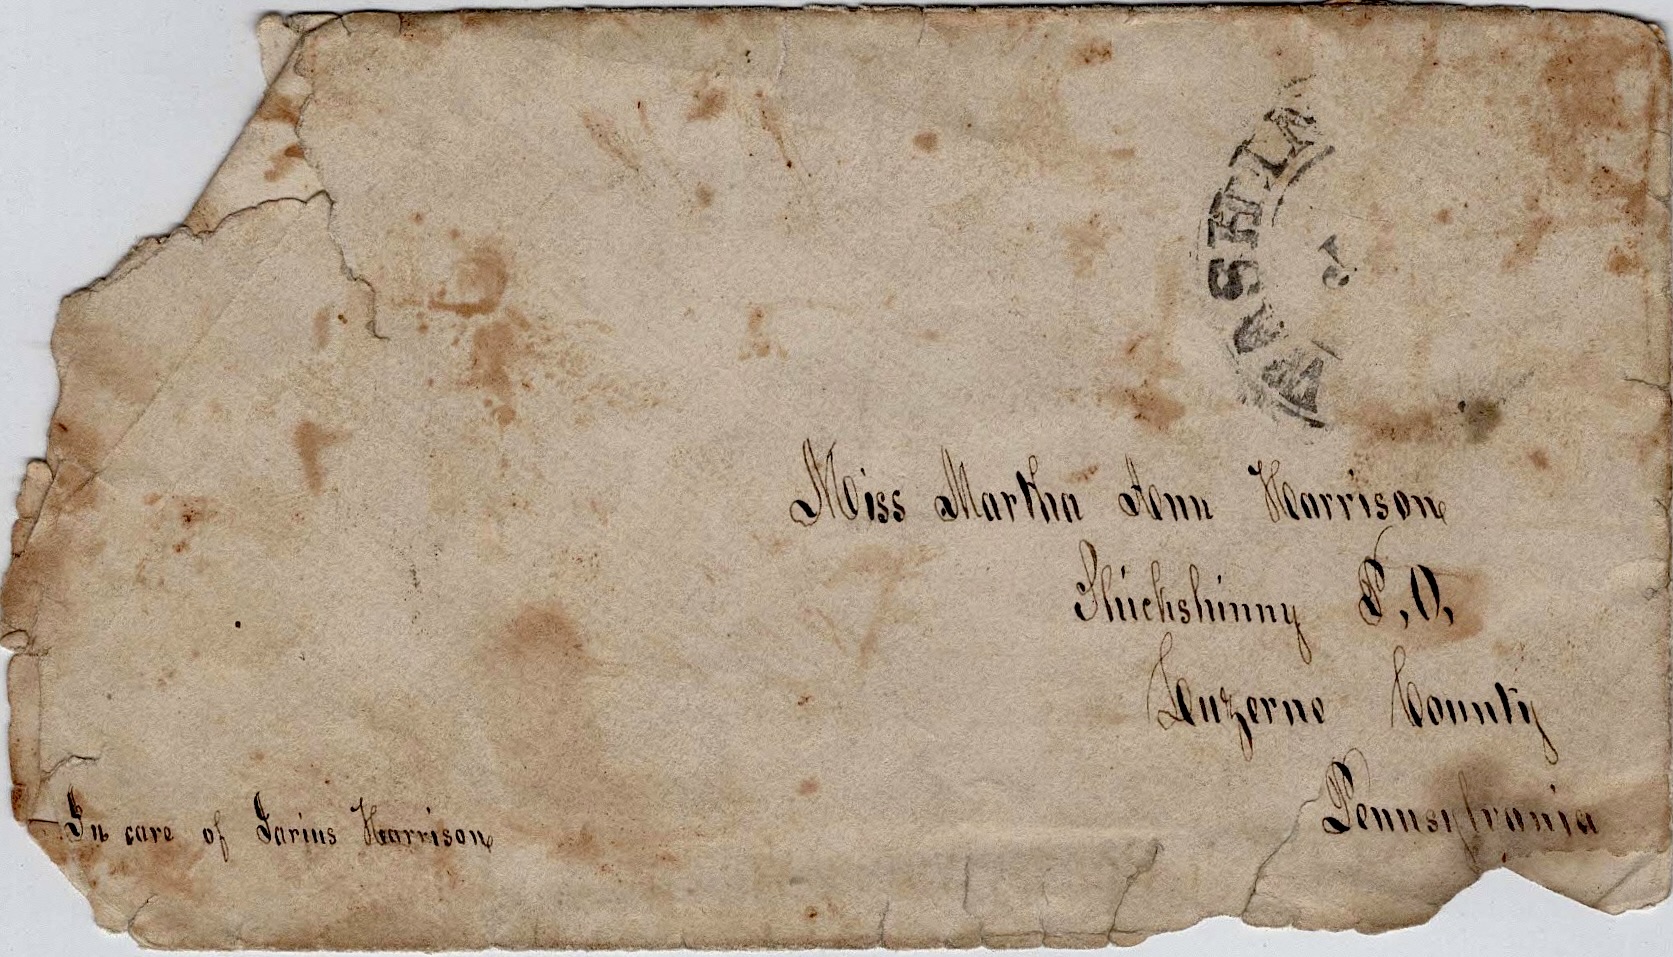 WASHIN
Miss Martha Ann Harrison
Shickshinny P.O.
Luzerne County
Pennsylvania
In care of Darius Harrison